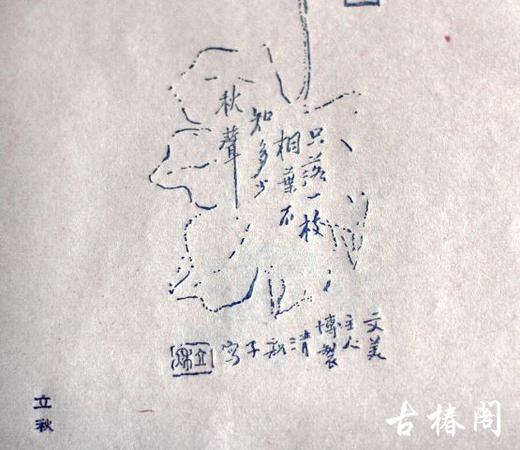 只落一
相葉不
知多少
秋聲
文美
主人
博製
清
子寫
立秋
立秋
古椿阁